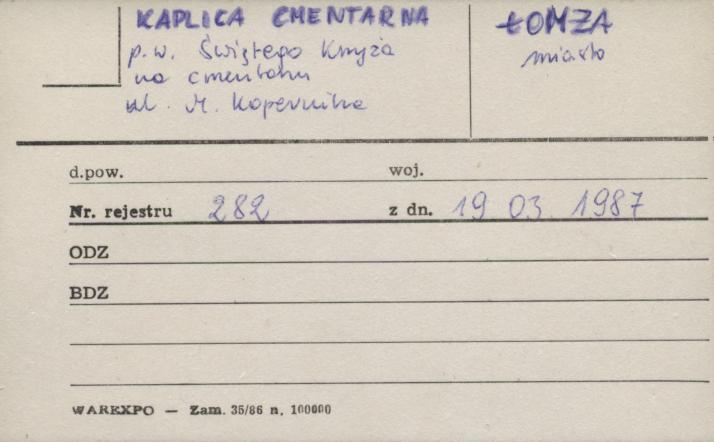 KAPLICA CMENTARNA
p.w. Świętego Krzyża
na cmentarzu
ul. M. Kopernika
ŁOMŻA
miasto
d.pow. woj.
Nr. rejestru 282 z dn. 19 03 1987
ODZ
BDZ
WAREXPO — Zam. 35/86 n. 100000